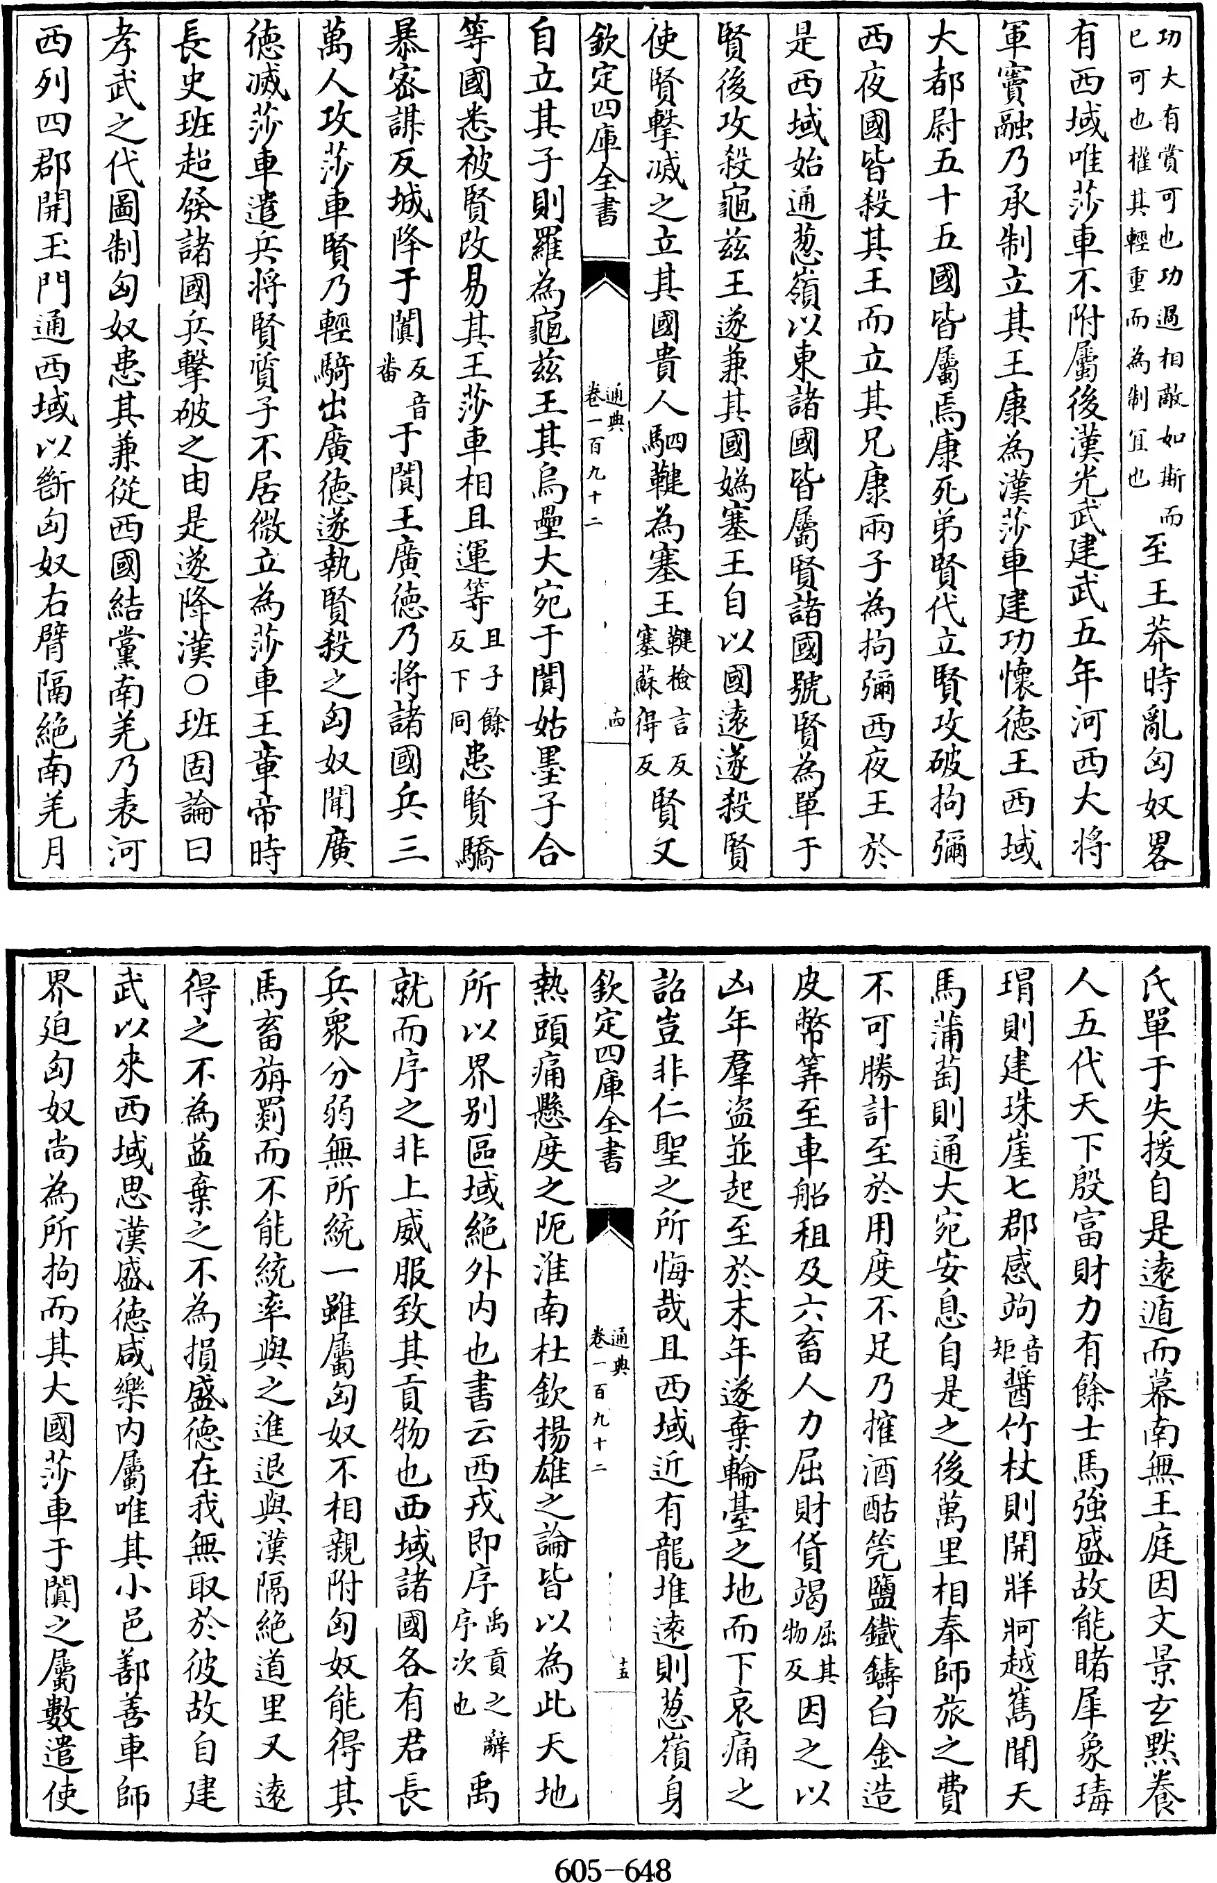 功大有賞可也功過相敵如斯而
已可也權其輕重而為制宜也
至王莽時亂匈奴畧
有西域唯莎車不附屬後漢光武建武五年河西大將
軍竇融乃承制立其王康為漢莎車建功懷徳王西域
大都尉五十五國皆屬焉康死弟賢代立賢攻破拘彌
西夜國皆殺其王而立其兄康兩子為拘彌西夜王於
是西域始通葱嶺以東諸國皆屬賢諸國號賢為單于
賢後攻殺龜兹王遂兼其國媯塞王自以國逺遂殺賢
使賢擊滅之立其國貴人駟鞬為塞王
鞬檢言反
塞蘇得反
賢又
欽定四庫全書
通典
卷一百九十二
十四
自立其子則羅為龜兹王其烏壘大宛于闐姑墨子合
等國悉被賢改易其王莎車相且運等
且子餘
反下同
患賢驕
暴密謀反城降于闐
反音
畨
于闐王廣徳乃將諸國兵三
萬人攻莎車賢乃輕騎出廣徳遂執賢殺之匈奴聞廣
徳滅莎車遣兵將賢質子不居微立為莎車王章帝時
長史班超發諸國兵擊破之由是遂降漢○班固論曰
孝武之代圖制匈奴患其兼從西國結黨南羌乃表河
西列四郡開玉門通西域以斷匈奴右臂隔絶南羌月
氏單于失援自是逺遁而幕南無王庭因文景玄默養
人五代天下殷富財力有餘士馬強盛故能睹犀象瑇
瑁則建珠崖七郡感竘
音
矩
醬竹杖則開牂牁越嶲聞天
馬蒲萄則通大宛安息自是之後萬里相奉師旅之費
不可勝計至於用度不足乃榷酒酤筦鹽鐵鑄白金造
皮幣筭至車船租及六畜人力屈財貨竭
屈其
物反
因之以
凶年羣盗並起至於末年遂棄輪臺之地而下哀痛之
詔豈非仁聖之所悔哉且西域近有龍堆逺則葱嶺身
欽定四庫全書
通典
卷一百九十二
十五
熱頭痛懸度之阨淮南杜欽揚雄之論皆以為此天地
所以界别區域絶外内也書云西戎即序
禹貢之辭
序次也
禹
就而序之非上威服致其貢物也西域諸國各有君長
兵衆分弱無所統一雖屬匈奴不相親附匈奴能得其
馬畜旃罽而不能統率與之進退與漢隔絶道里又逺
得之不為益棄之不為損盛徳在我無取於彼故自建
武以來西域思漢盛徳咸樂内屬唯其小邑鄯善車師
界迫匈奴尚為所拘而其大國莎車于闐之屬數遣使
605-648